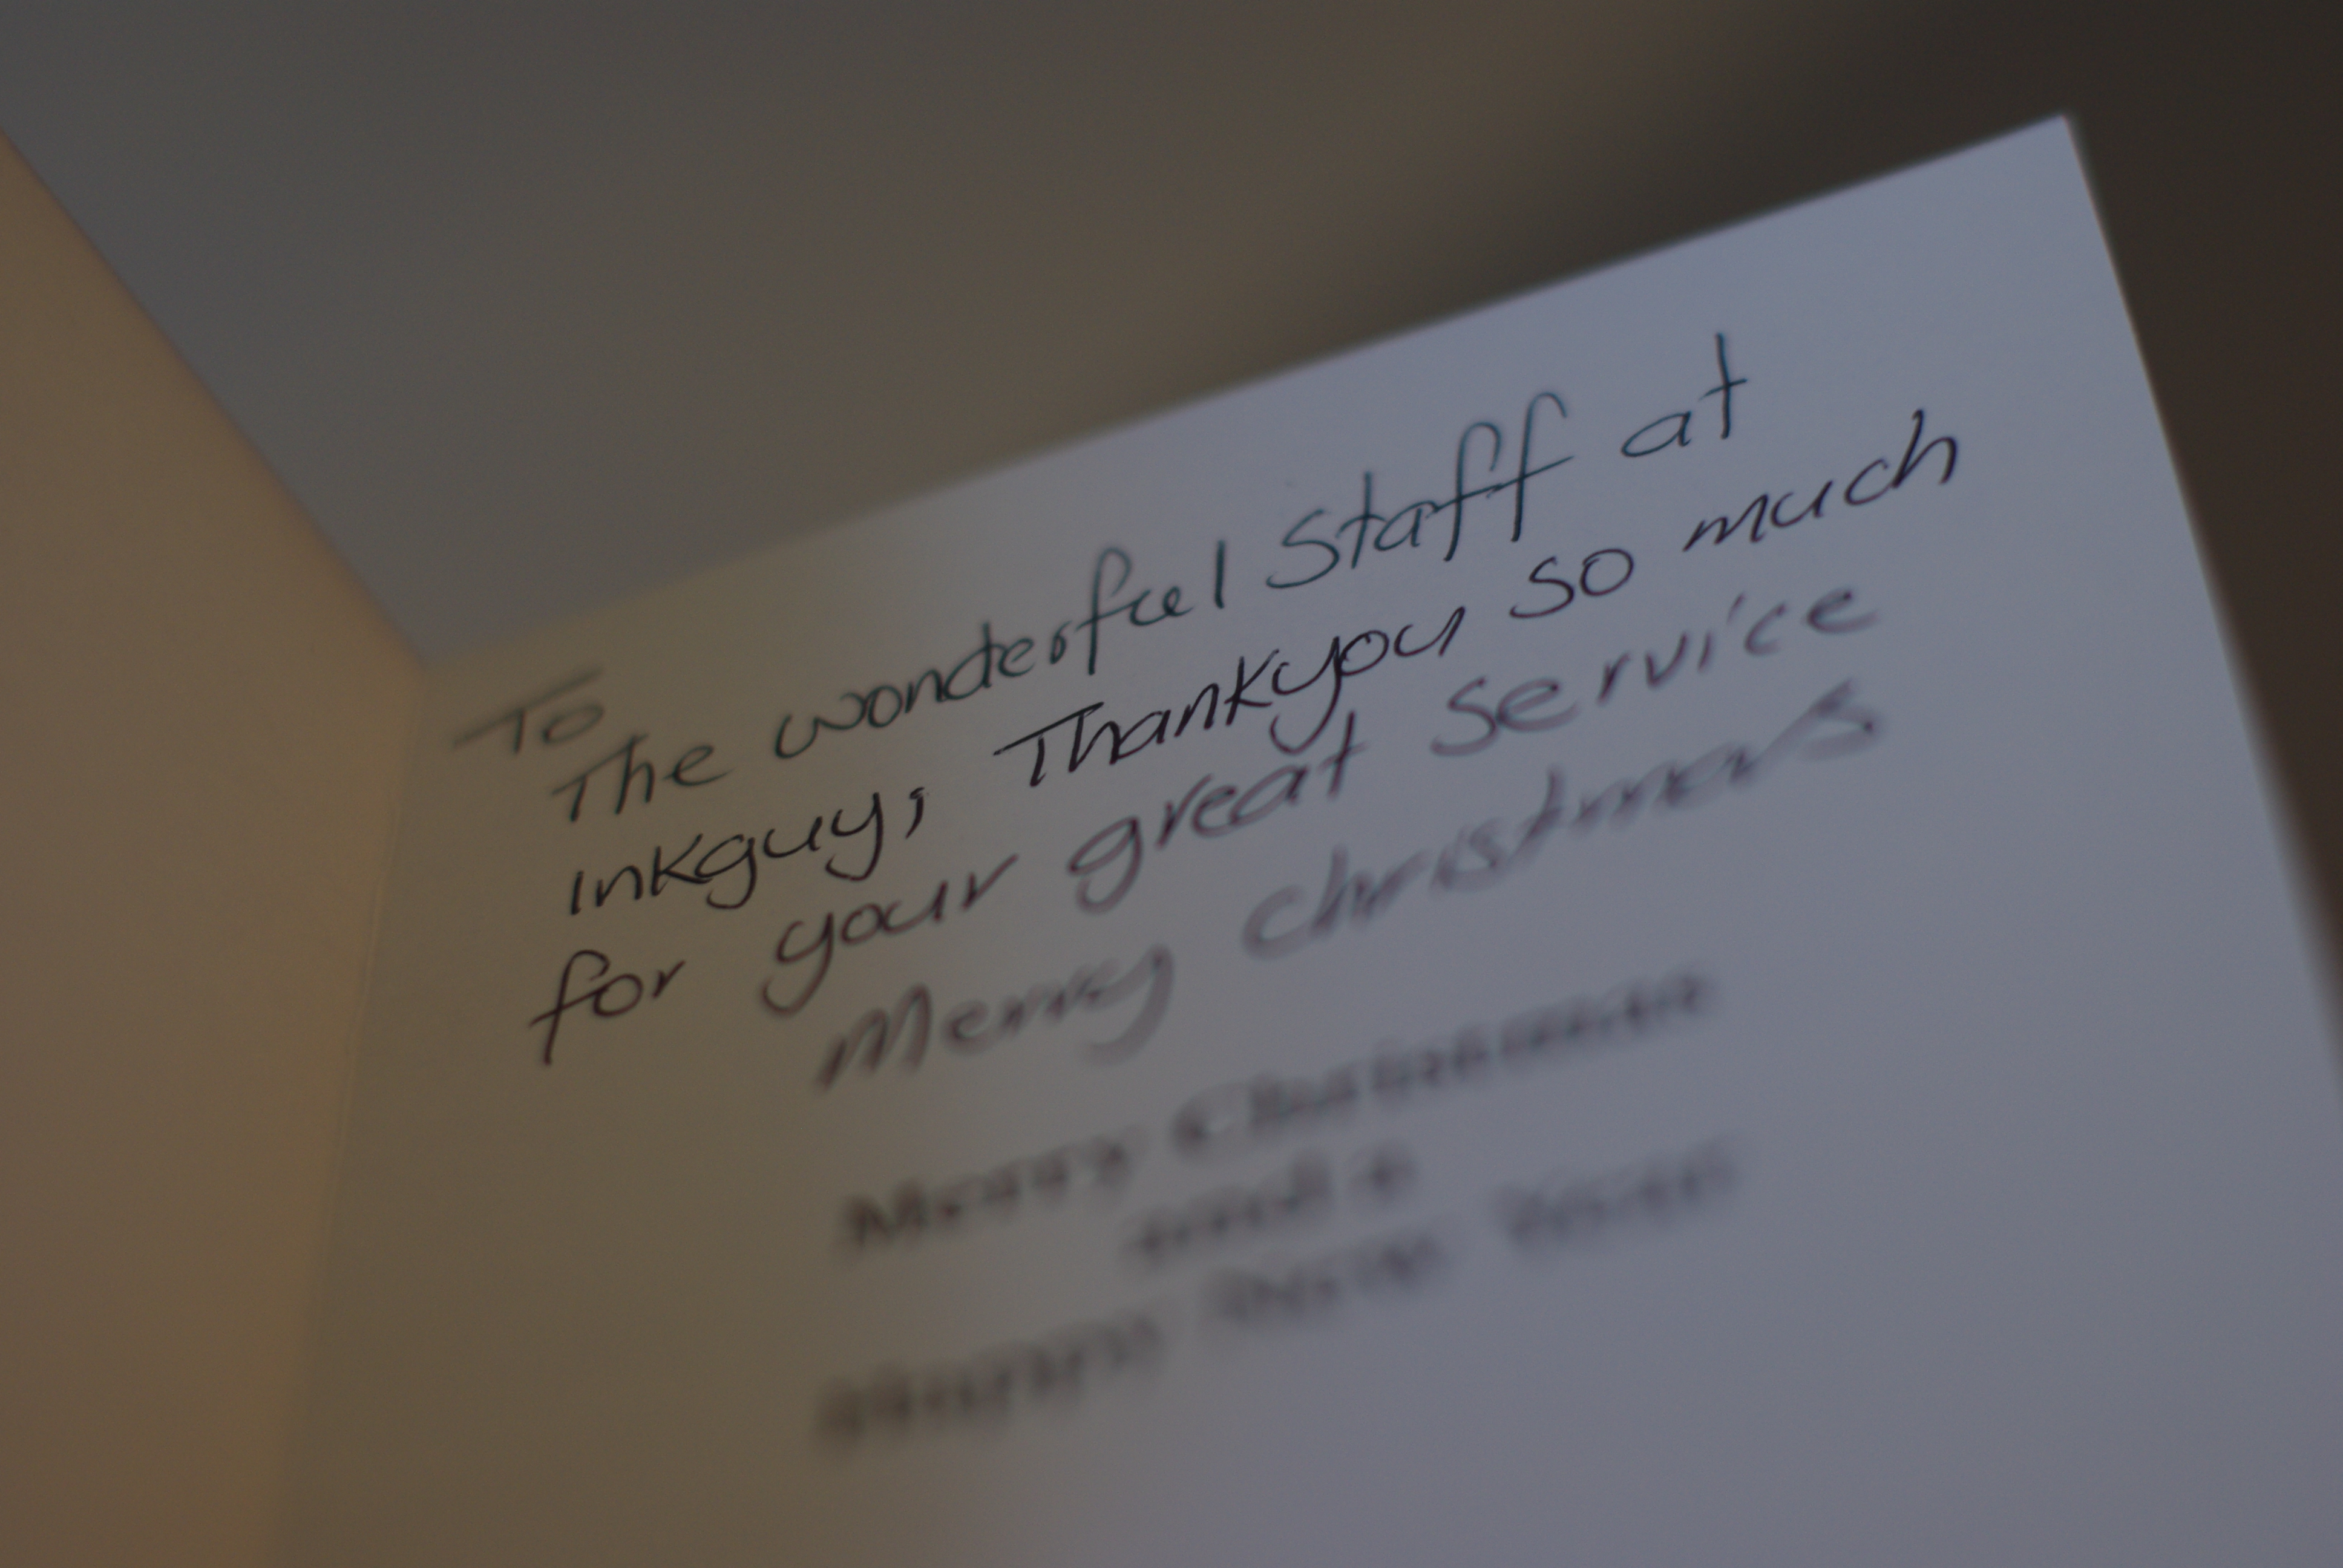 To
The wonderful Staff at
inkguy, Thankyou so much
for your great service
Merry christmas
Merry Christmas
and a
Happy New Year